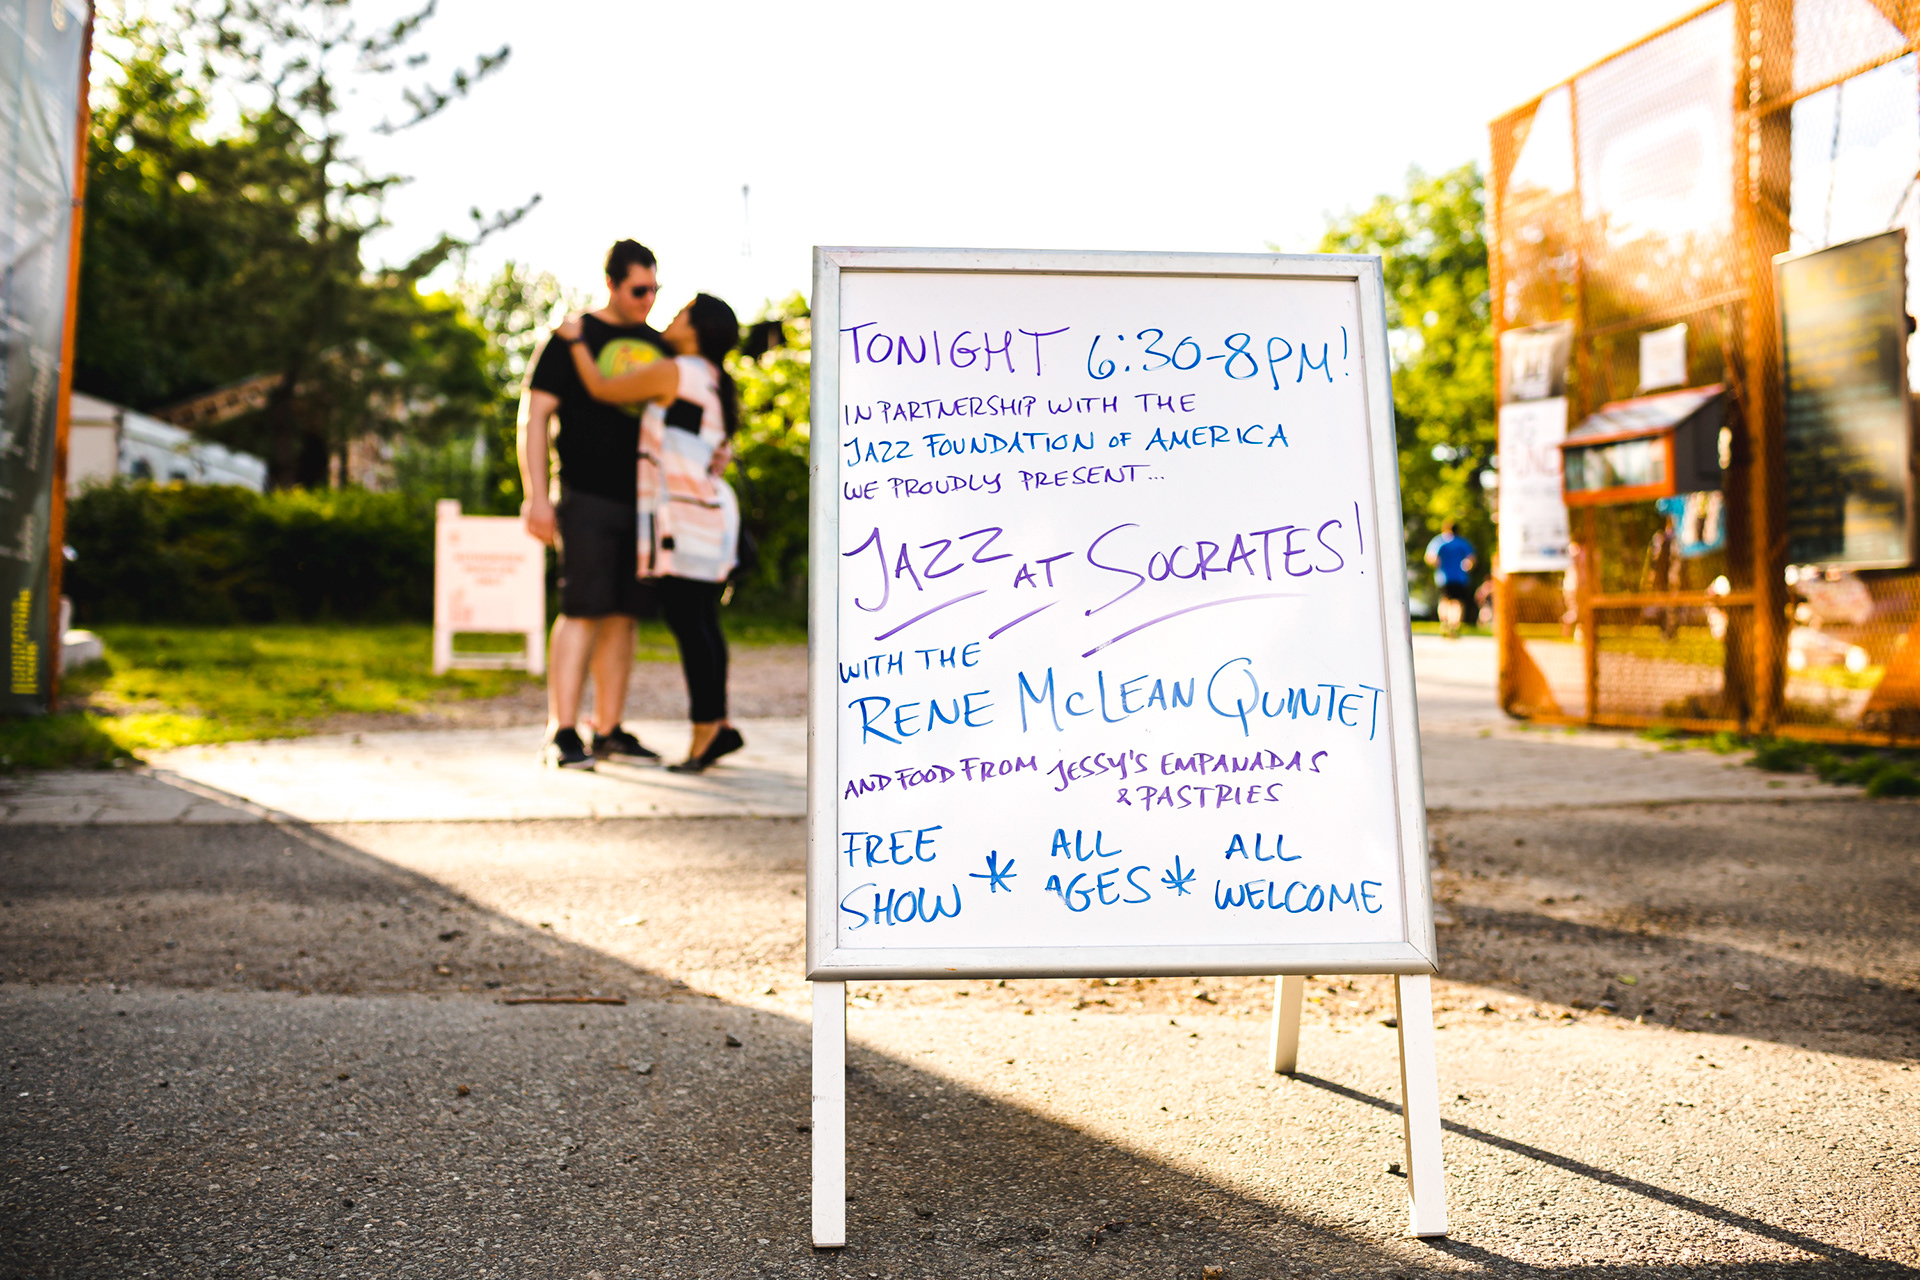 TONIGHT 6:30-8PM!
IN PARTNERSHIP WITH THE
JAZZ FOUNDATION OF AMERICA
WE PROUDLY PRESENT...
JAZZ AT SOCRATES!
WITH THE
RENE MCLEAN QUINTET
AND FOOD FROM JESSY'S EMPANADAS
& PASTRIES
FREE * ALL * ALL
SHOW AGES WELCOME